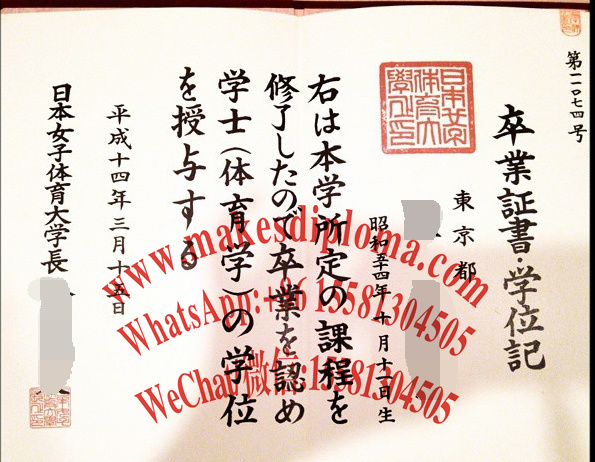 卒業証書・学位記
第一一〇七四号
東京都
昭和五十四年十月十一日生
右は本学所定の課程を
修了したので卒業を認め
学士(体育学)の学位
を授与する
平成十四年三月十五日
日本女子体育大学長
www.makesdiploma.com
WhatsApp:+86 15581304505
WeChan微信:15581304505